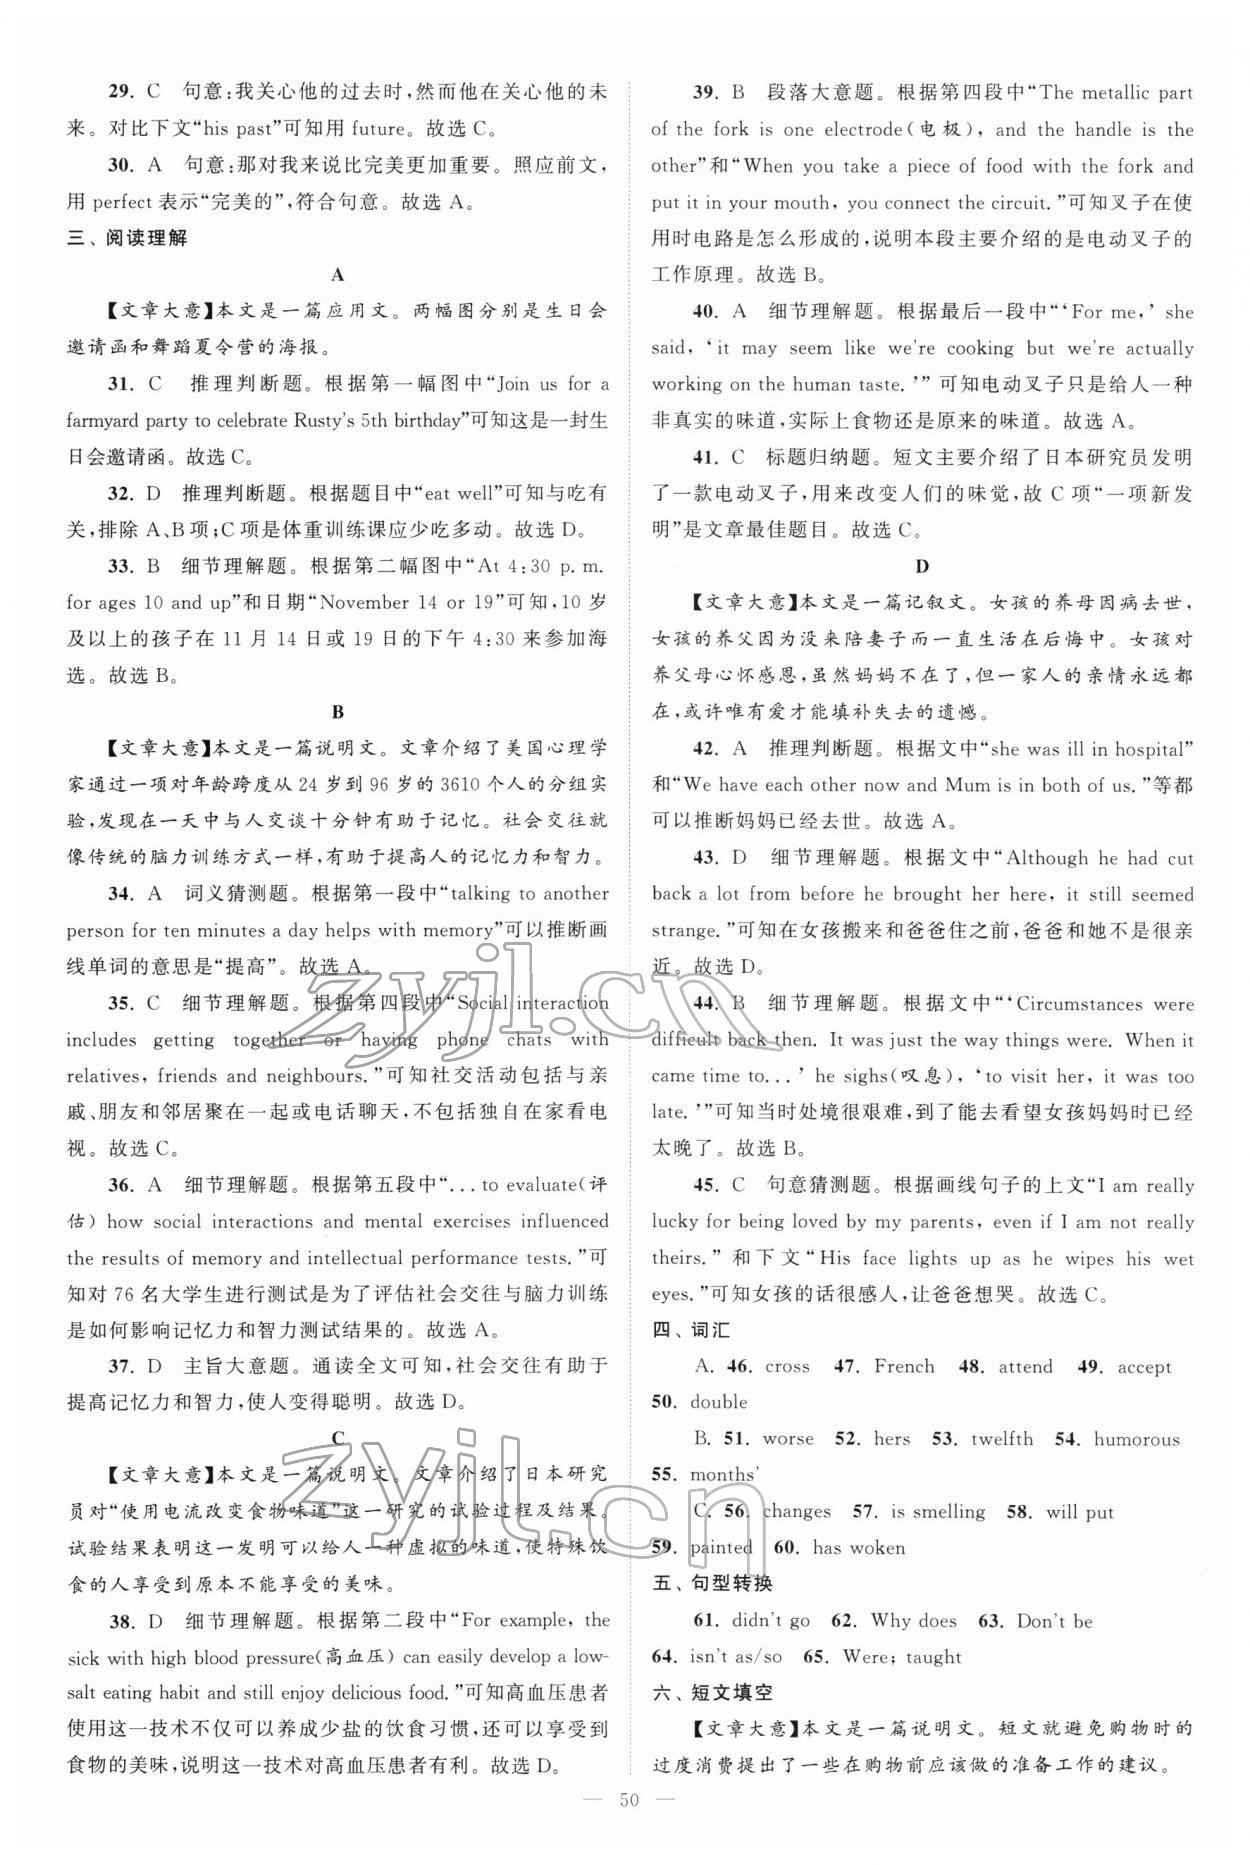 29. C 句意:我关心他的过去时,然而他在关心他的未
来。对比下文“his past”可知用 future。故选 C。
30. A 句意:那对我来说比完美更加重要。照应前文,
用 perfect 表示“完美的”,符合句意。故选 A。
三、阅读理解
A
【文章大意】本文是一篇应用文。两幅图分别是生日会
邀请函和舞蹈夏令营的海报。
31. C 推理判断题。根据第一幅图中“Join us for a
farmyard party to celebrate Rusty's 5th birthday”可知这是一封生
日会邀请函。故选 C。
32. D 推理判断题。根据题目中“eat well”可知与吃有
关,排除 A、B 项;C 项是体重训练课应少吃多动。故选 D。
33. B 细节理解题。根据第二幅图中“At 4:30 p. m.
for ages 10 and up”和日期“November 14 or 19”可知,10 岁
及以上的孩子在 11 月 14 日或 19 日的下午 4:30 来参加海
选。故选 B。
B
【文章大意】本文是一篇说明文。文章介绍了美国心理学
家通过一项对年龄跨度从 24 岁到 96 岁的 3610 个人的分组实
验,发现在一天中与人交谈十分钟有助于记忆。社会交往就
像传统的脑力训练方式一样,有助于提高人的记忆力和智力。
34. A 词义猜测题。根据第一段中“talking to another
person for ten minutes a day helps with memory”可以推断画
线单词的意思是“提高”。故选 A。
35. C 细节理解题。根据第四段中“Social interaction
includes getting together or having phone chats with
relatives, friends and neighbours.”可知社交活动包括与亲
戚、朋友和邻居聚在一起或电话聊天,不包括独自在家看电
视。故选 C。
36. A 细节理解题。根据第五段中“... to evaluate(评
估) how social interactions and mental exercises influenced
the results of memory and intellectual performance tests.”可
知对 76 名大学生进行测试是为了评估社会交往与脑力训练
是如何影响记忆力和智力测试结果的。故选 A。
37. D 主旨大意题。通读全文可知,社会交往有助于
提高记忆力和智力,使人变得聪明。故选 D。
C
【文章大意】本文是一篇说明文。文章介绍了日本研究
员对“使用电流改变食物味道”这一研究的试验过程及结果。
试验结果表明这一发明可以给人一种虚拟的味道,使特殊饮
食的人享受到原本不能享受的美味。
38. D 细节理解题。根据第二段中“For example, the
sick with high blood pressure(高血压) can easily develop a low-
salt eating habit and still enjoy delicious food.”可知高血压患者
使用这一技术不仅可以养成少盐的饮食习惯,还可以享受到
食物的美味,说明这一技术对高血压患者有利。故选 D。
39. B 段落大意题。根据第四段中“The metallic part
of the fork is one electrode(电极), and the handle is the
other”和“When you take a piece of food with the fork and
put it in your mouth, you connect the circuit.”可知叉子在使
用时电路是怎么形成的,说明本段主要介绍的是电动叉子的
工作原理。故选 B。
40. A 细节理解题。根据最后一段中“‘For me,’ she
said, ‘it may seem like we're cooking but we're actually
working on the human taste.’” 可知电动叉子只是给人一种
非真实的味道,实际上食物还是原来的味道。故选 A。
41. C 标题归纳题。短文主要介绍了日本研究员发明
了一款电动叉子,用来改变人们的味觉,故 C 项“一项新发
明”是文章最佳题目。故选 C。
D
【文章大意】本文是一篇记叙文。女孩的养母因病去世,
女孩的养父因为没来陪妻子而一直生活在后悔中。女孩对
养父母心怀感恩,虽然妈妈不在了,但一家人的亲情永远都
在,或许唯有爱才能填补失去的遗憾。
42. A 推理判断题。根据文中“she was ill in hospital”
和“We have each other now and Mum is in both of us.”等都
可以推断妈妈已经去世。故选 A。
43. D 细节理解题。根据文中“Although he had cut
back a lot from before he brought her here, it still seemed
strange.”可知在女孩搬来和爸爸住之前,爸爸和她不是很亲
近。故选 D。
44. B 细节理解题。根据文中“‘Circumstances were
difficult back then. It was just the way things were. When it
came time to...’ he sighs(叹息), ‘to visit her, it was too
late.’”可知当时处境很艰难,到了能去看望女孩妈妈时已经
太晚了。故选 B。
45. C 句意猜测题。根据画线句子的上文“I am really
lucky for being loved by my parents, even if I am not really
theirs.” 和下文“His face lights up as he wipes his wet
eyes.”可知女孩的话很感人,让爸爸想哭。故选 C。
四、词汇
A. 46. cross 47. French 48. attend 49. accept
50. double
B. 51. worse 52. hers 53. twelfth 54. humorous
55. months'
C. 56. changes 57. is smelling 58. will put
59. painted 60. has woken
五、句型转换
61. didn't go 62. Why does 63. Don't be
64. isn't as/so 65. Were; taught
六、短文填空
【文章大意】本文是一篇说明文。短文就避免购物时的
过度消费提出了一些在购物前应该做的准备工作的建议。
— 50 —
zyjl.cn
zyjl.cn